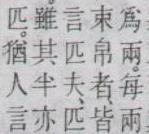 爲兩。每兩
束帛者、皆
言匹夫、匹
雖其半亦
匹。猶人言